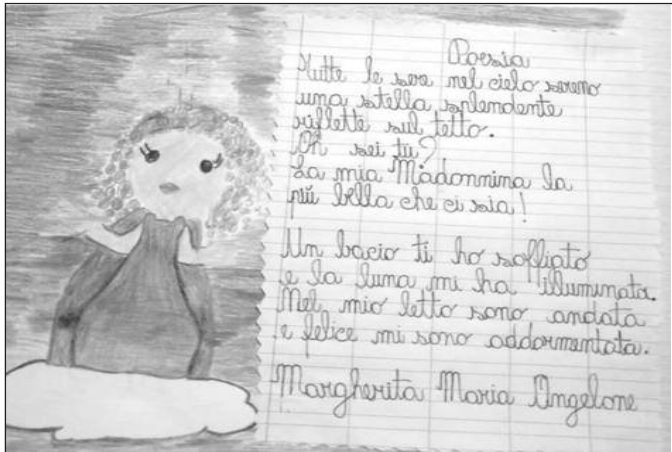 Poesia
Tutte le sere nel cielo sereno
una stella splendente
riflette sul tetto.
Oh sei tu?
La mia Madonnina la
più bella che ci sia!
Un bacio ti ho soffiato
e la luna mi ha illuminata.
Nel mio letto sono andata
e felice mi sono addormentata.
Margherita Maria Angelone